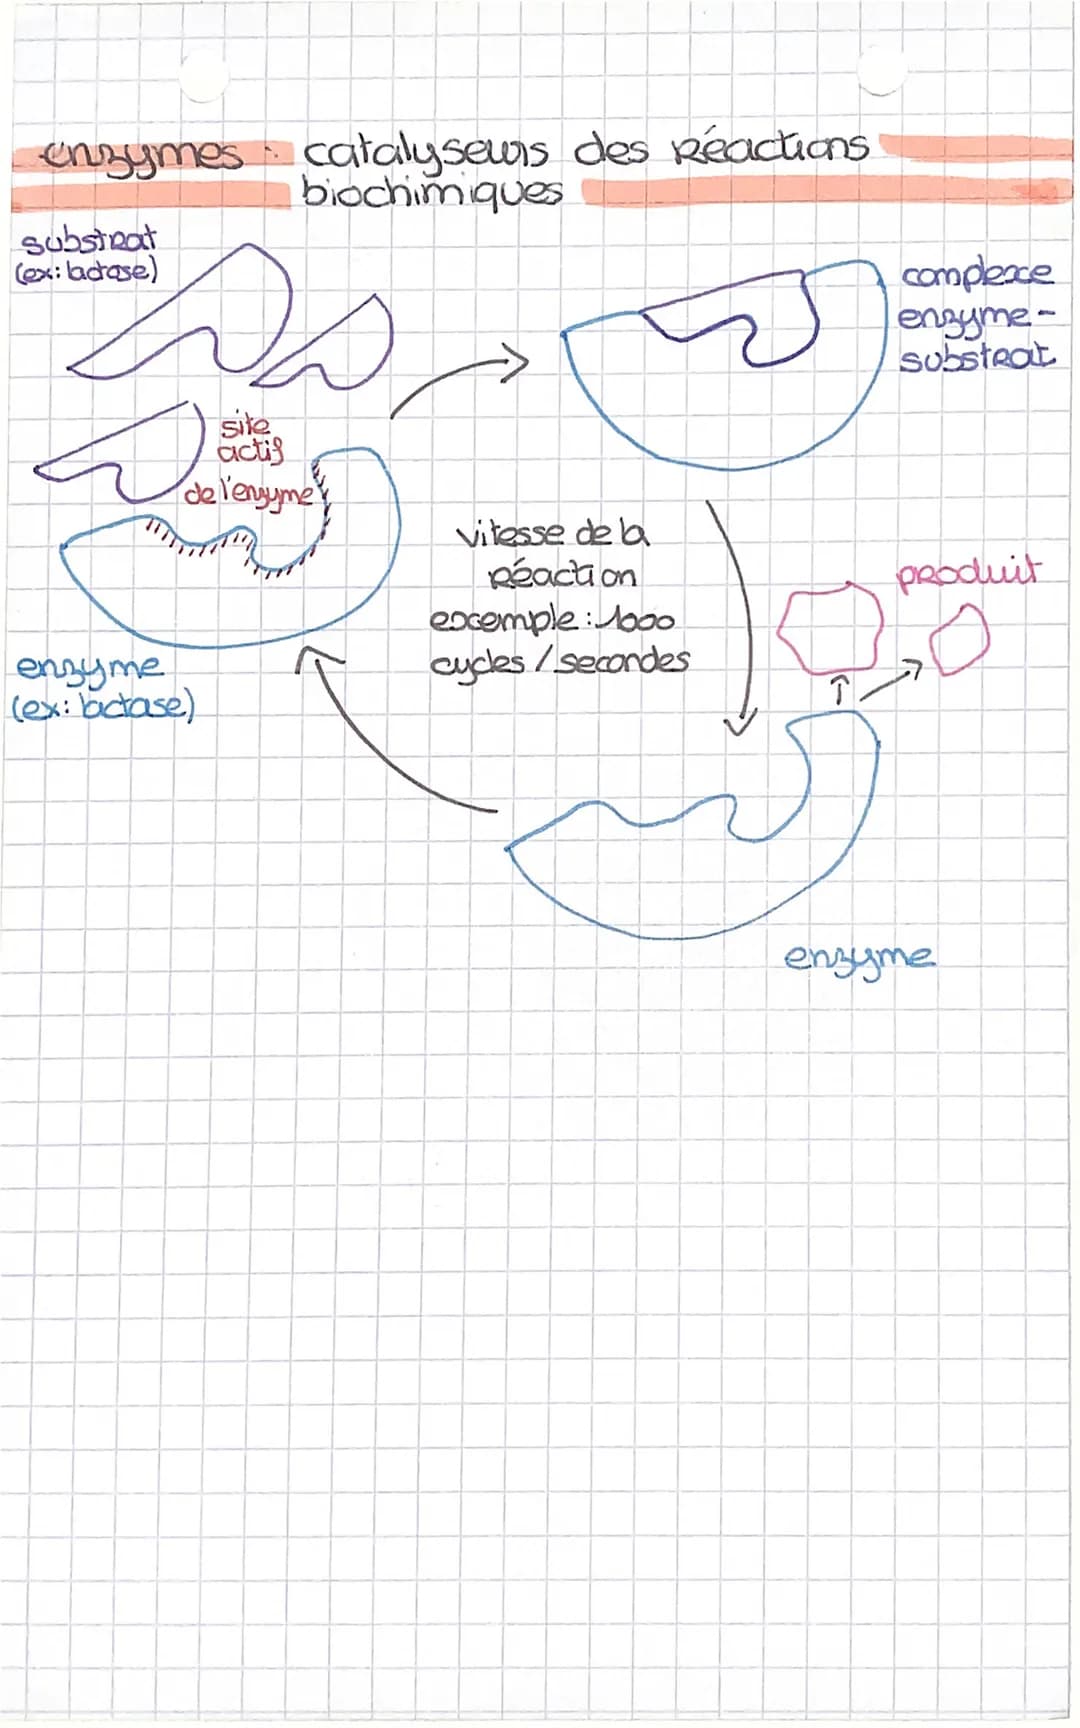 enzymes : catalyseurs des Réactions
biochimiques
substrat
(ex: lactase)
complexe
enzyme-
substrat
site
actif
de l'enzyme
vitesse de la
Réaction
exemple : 1000
cycles / secondes
produit
enzyme
(ex: lactase)
enzyme